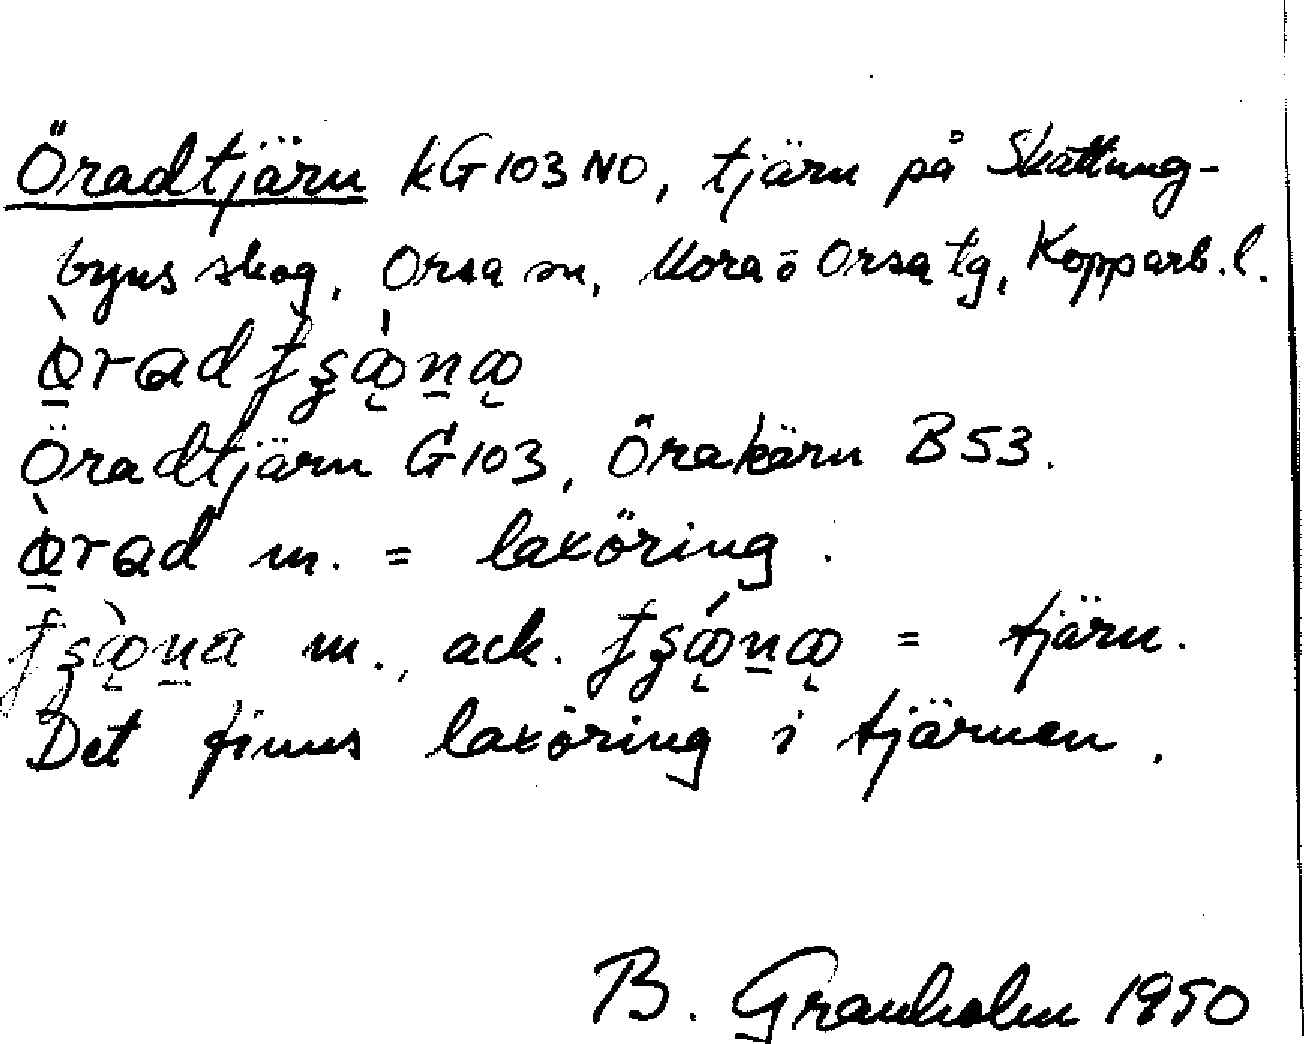 Öradtjärn kG103NO, tjärn på Skattung-
byns skog, Orsa sn, Mora o Orsa tg, Kopparb. l.
Öradtjärn G103, Örakärn B53.
m. = laxöring.
m., ack. = tjärn.
Det finns laxöring i tjärnen.
B. Granholm 1950